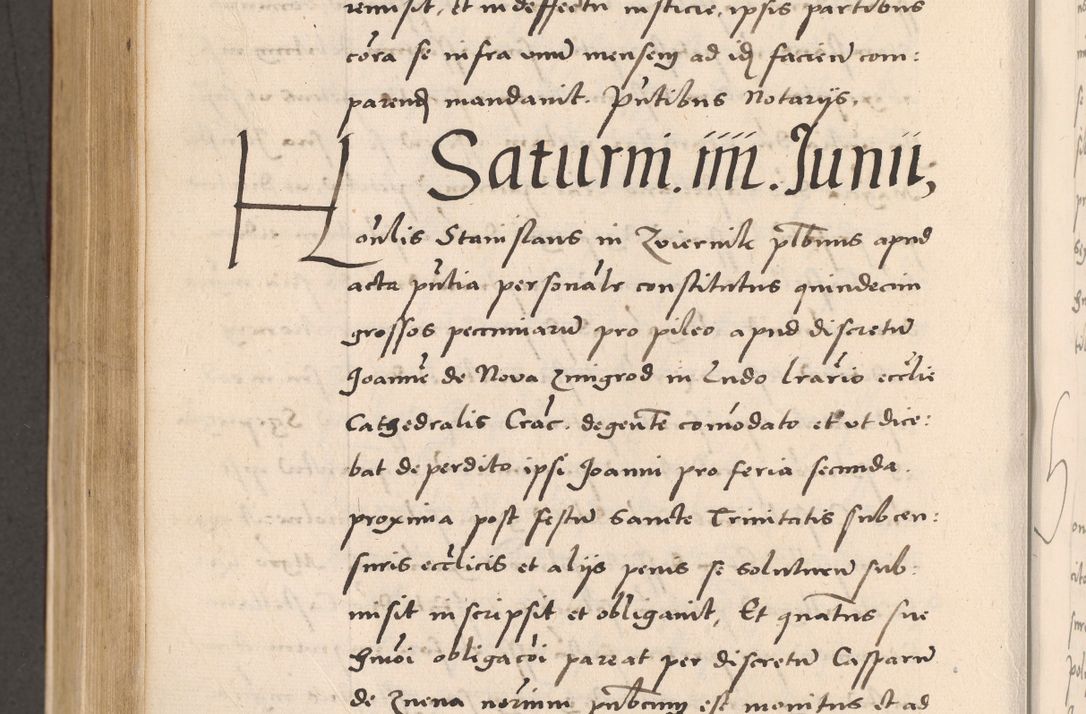 remisit, et in deffectu insticie, ipsis partibus
cora se infra unu mensem ad id faciend com:
parend mandavit. Pntibus Notariis.
Saturni. iiii. Junii,
H Honlis Stanislaus in Zviernik plbnus apud
acta pntia personalr constitutus quindecim
grossos pecuniaru pro pileo apud discretu
Joanne de Nova Zmigrod in Ludo lrario ecclie
Cathedralis Crac. degente comodato et ut dice:
bat deperdito ipsi Joanni pro feria secunda
proxima post festu Sancte Trinitatis sub cen:
suris ecclicis et aliis penis se soluturu sub:
misit inscripsit et obligavit, Et quatus sue
hmoi obligacoi pareat per discretu Casparu
de Znena norium publicum est monitus et ad